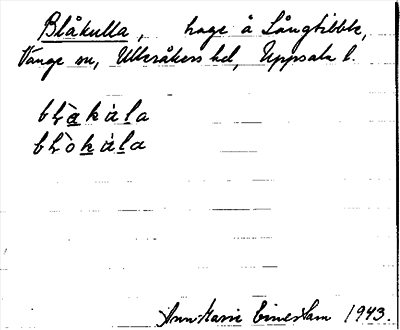 Blåkulla, hage å Långtibble,
Vänge sn, Ulleråkers hd, Uppsala l.
bḷàkúla
bḷòkúla
Ann-Marie 1943.